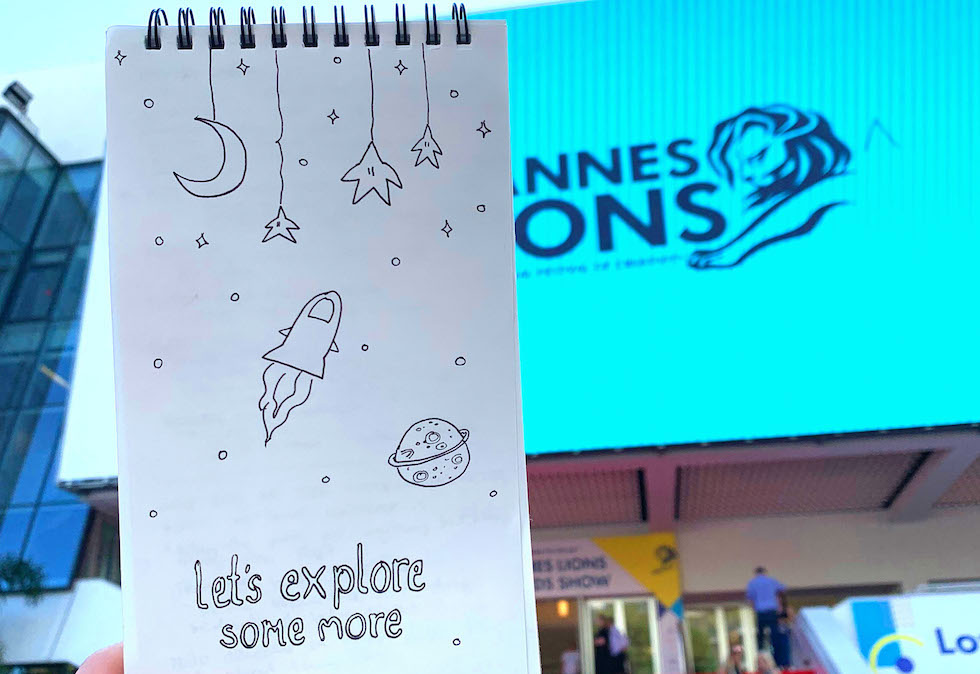 let's explore
some more
ANNES
IONS
ES LIONS
DS SHOW
Lo